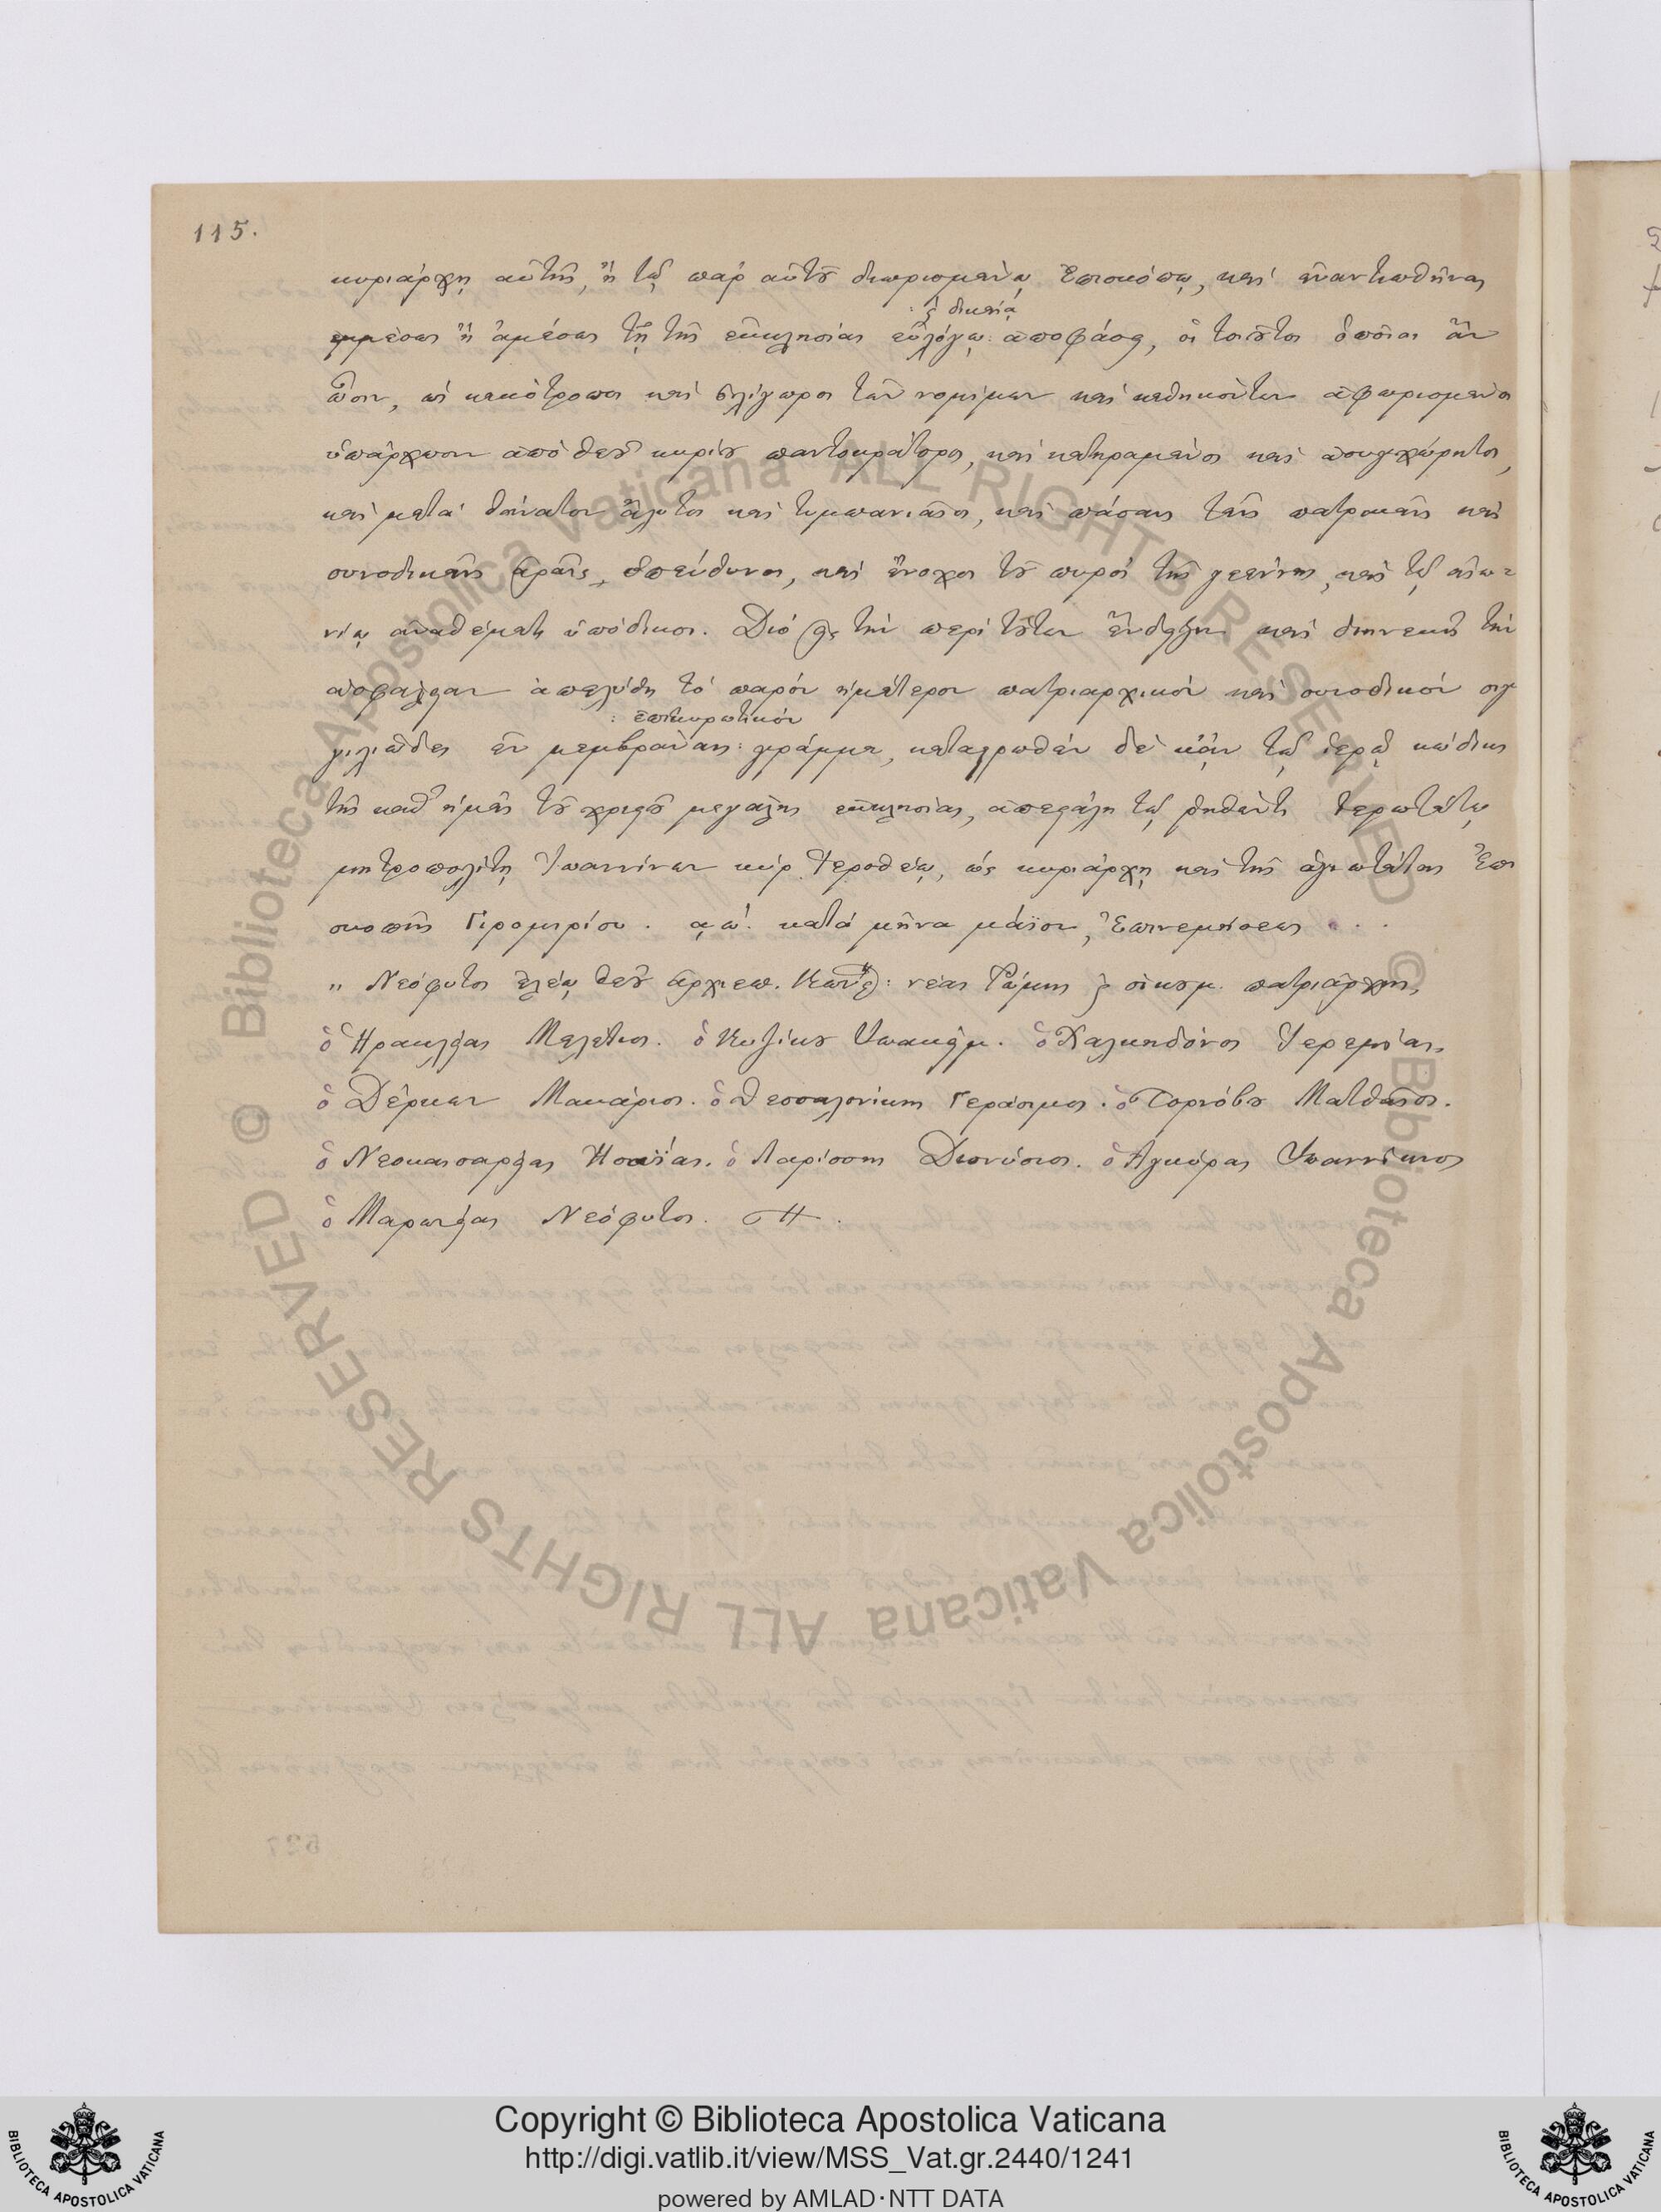 115.
κυριάρχῃ αὐτῆς, ἢ τῷ παρ' αὐτοῦ διωρισμένῳ Ἐπισκόπῳ, καὶ ἐναντιωθῆναι
: καὶ δικαίᾳ
ἐμμέσως ἢ ἀμέσως τῇ τῆς ἐκκλησίας εὐλόγῳ: ἀποφάσει, οἱ τοιοῦτοι ὁποῖοι ἂν
ὦσιν, ὡς κακότροποι καὶ ὀλίγωροι τῶν νομίμων καὶ καθηκόντων ἀφωρισμένοι
ὑπάρχωσιν ἀπὸ θεοῦ κυρίου παντοκράτορος, καὶ κατηραμένοι καὶ ἀσυγχώρητοι,
καὶ μετὰ θάνατον ἄλυτοι καὶ τυμπανιαῖοι, καὶ πάσαις ταῖς πατρικαῖς καὶ
συνοδικαῖς ἀραῖς, ὑπεύθυνοι, καὶ ἔνοχοι τοῦ πυρὸς τῆς γεέννης, καὶ τῷ αἰω-
νίῳ ἀναθέματι ὑπόδικοι. Διὸ εἰς τὴν περὶ τούτων ἔνδειξιν καὶ διηνεκῆ τὴν
ἀσφάλειαν ἀπελύθη τὸ παρὸν ἡμέτερον πατριαρχικὸν καὶ συνοδικὸν σιγ
: ἐπικυρωτικὸν
γιλιῶδες ἐν μεμβράναις: γράμμα, καταστρωθὲν δὲ κἀν τῷ ἱερῷ κώδικι
τῆς καθ' ἡμᾶς τοῦ χριστοῦ μεγάλης ἐκκλησίας, ἀπεστάλη τῷ ῥηθέντι Ἱερωτάτῳ
μητροπολίτῃ Ἰωαννίνων κὺρ Ἱεροθέῳ, ὡς κυριάρχῃ καὶ τῆς ἁγιωτάτης Ἐπι
σκοπῆς Γιρομηρίου. αω. κατὰ μῆνα μάϊον, Ἐπινεμήσεως . . .
" Νεόφυτος ἐλέῳ θεοῦ ἀρχιεπ. Κωνστ: νέας Ῥώμης καὶ οἰκουμ. πατριάρχης.
ὁ Ἡρακλείας Μελέτιος. ὁ Κυζίκου Ἰωακείμ. ὁ Χαλκηδόνος Ἱερεμίας.
ὁ Δέρκων Μακάριος. ὁ Θεσσαλονίκης Γεράσιμος. ὁ Τορνόβου Ματθαῖος.
ὁ Νεοκαισαρείας Ἠσαΐας. ὁ Λαρίσσης Διονύσιος. ὁ Ἀγκύρας Ἰωαννίκιος
ὁ Μαρωνείας Νεόφυτος.
© Biblioteca Apostolica Vaticana ALL RIGHTS RESERVED © Biblioteca Apostolica Vaticana ALL RIGHTS RESERVED
Copyright © Biblioteca Apostolica Vaticana
http://digi.vatlib.it/view/MSS_Vat.gr.2440/1241
powered by AMLAD·NTT DATA
BIBLIOTECA APOSTOLICA VATICANA
BIBLIOTECA APOSTOLICA VATICANA